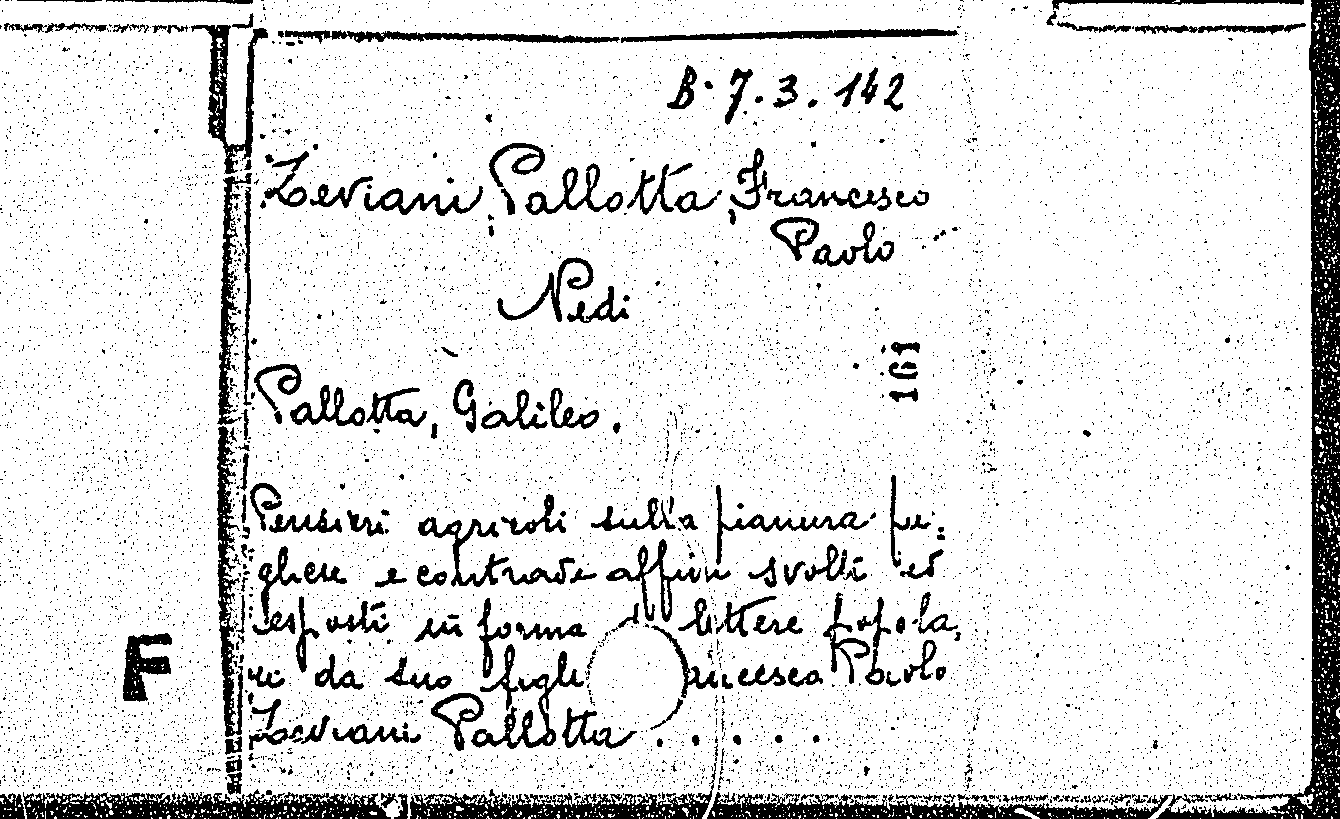 B. 7. 3. 142
Zeviani Pallotta, Francesco
Paolo
Vedi
161
Pallotta, Galileo.
Pensieri agricoli sulla pianura pu=
gliese e contrade affini svolti ed
esposti in forma di lettere popola,
F
ri da suo figli ancesco Paolo
Zeviani Pallotta . . . . .